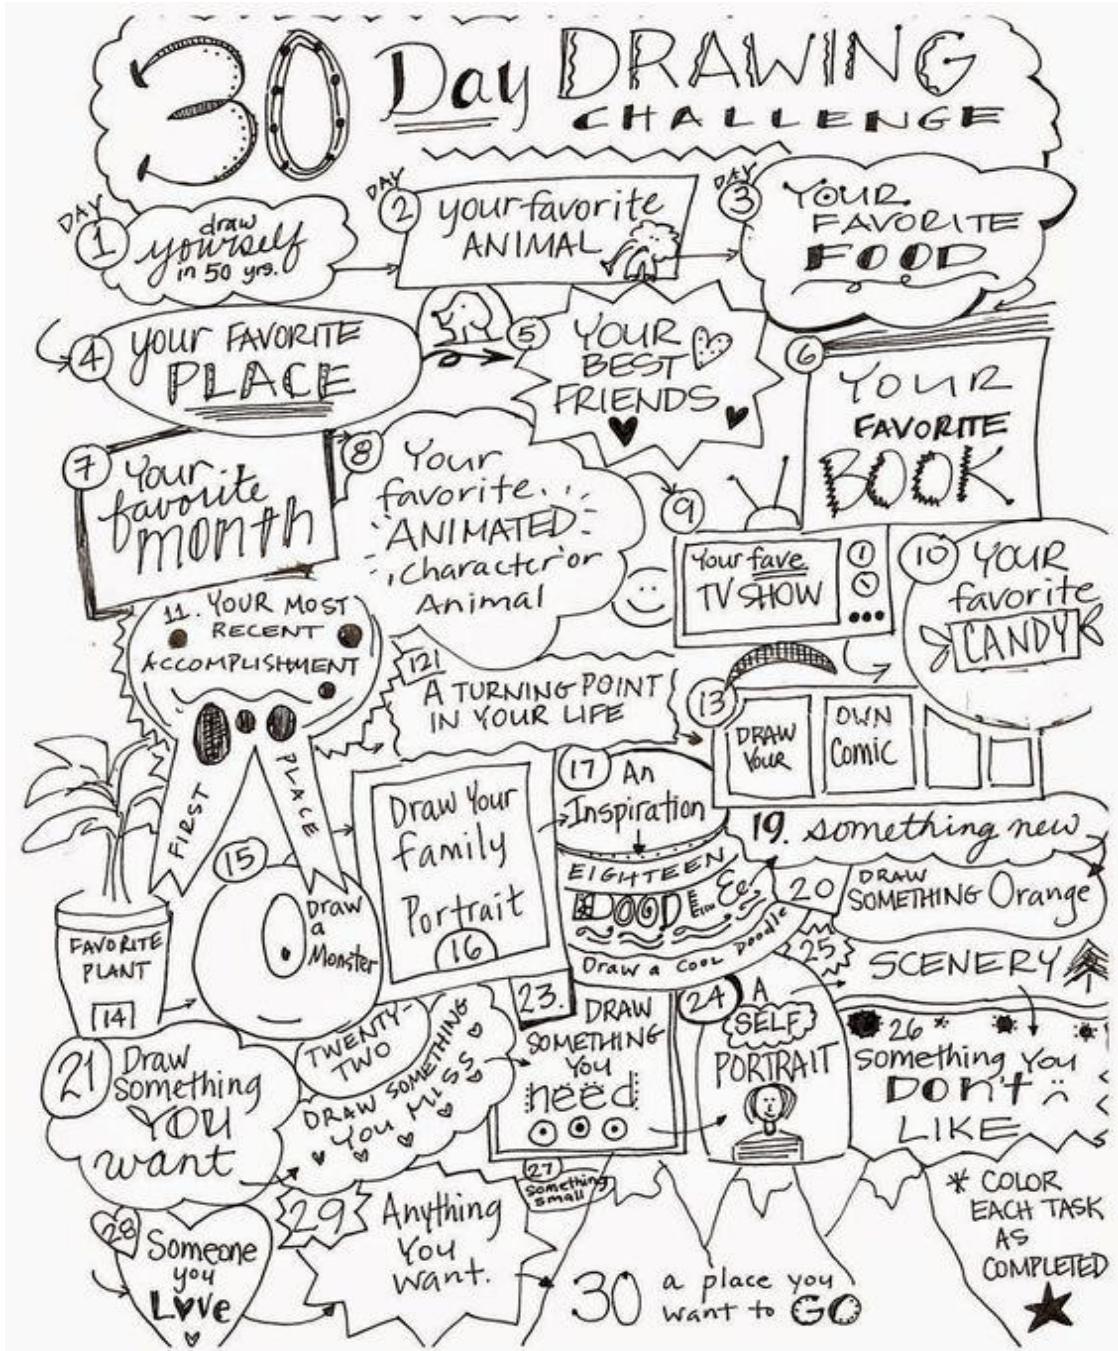 30 Day DRAWING
CHALLENGE
DAY
1
draw
yourself
in 50 yrs.
DAY
2
your favorite
ANIMAL
DAY
3
YOUR
FAVORITE
FOOD
4
your FAVORITE
PLACE
5
YOUR
BEST
FRIENDS
6
YOUR
FAVORITE
BOOK
7
Your
favorite
month
8
Your
favorite
ANIMATED
character or
Animal
9
Your fave
TV SHOW
10
YOUR
favorite
CANDY
11. YOUR MOST
RECENT
ACCOMPLISHMENT
FIRST
PLACE
12
A TURNING POINT
IN YOUR LIFE
13
DRAW
YOUR
OWN
Comic
FAVORITE
PLANT
14
15
Draw
a
Monster
Draw Your
family
Portrait
16
17
An
Inspiration
EIGHTEEN
DOODLE
Draw a cool Doodle
19. something new
20
DRAW
SOMETHING Orange
21
Draw
something
YOU
want
TWENTY-
TWO
DRAW SOMETHING
YOU MISS
23.
DRAW
SOMETHING
YOU
need
24
A
SELF
PORTRAIT
25
SCENERY
26
Something You
DON'T
LIKE
27
Something
small
28
Someone
you
Love
29
Anything
You
want.
30
a place you
want to GO
* COLOR
EACH TASK
AS
COMPLETED